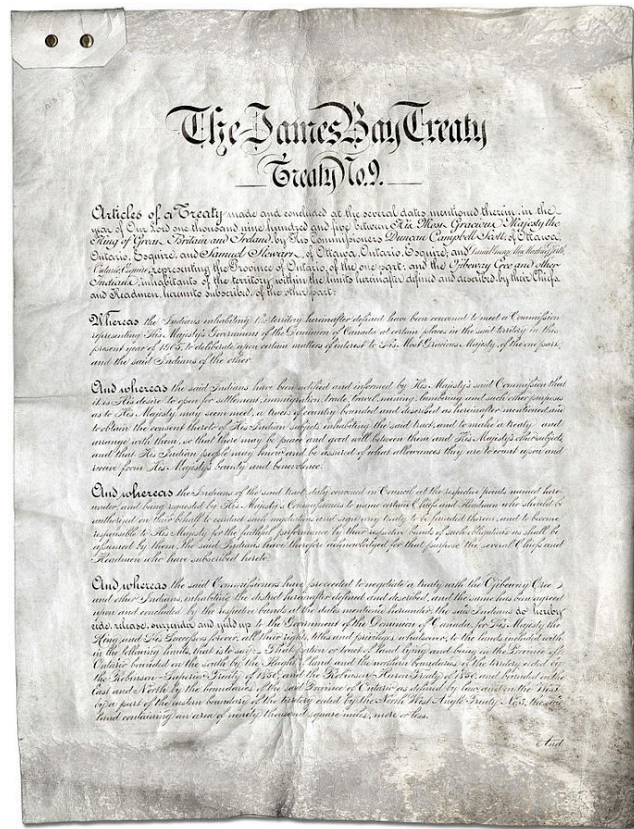 The James Bay Treaty
Treaty No. 9.
Articles of a Treaty made and concluded at the several dates mentioned therein, in the
year of Our Lord one thousand nine hundred and five between His Most Gracious Majesty the
King of Great Britain and Ireland, by His Commissioners Duncan Campbell Scott, of Ottawa,
Ontario, Esquire, and Samuel Stewart, of Ottawa, Ontario, Esquire; and Daniel
Ontario, Esquire, representing the Province of Ontario, of the one part; and the Ojibeway Cree and other
Indians, inhabitants of the territory within the limits hereinafter defined and described by their Chiefs
and Headmen hereunto subscribed, of the other part:
Whereas the Indians inhabiting the territory hereinafter defined have been convened to meet a Commission
representing His Majesty's Government of the Dominion of Canada at certain places in the said territory in this
present year of 1905, to deliberate upon certain matters of interest to His Most Gracious Majesty, of the one part,
and the said Indians of the other
And whereas the said Indians have been notified and informed by His Majesty's said Commission that
it is His desire to open for settlement, immigration, trade, travel, mining, lumbering and such other purposes
as to His Majesty may seem meet, a tract of country bounded and described as hereinafter mentioned, and
to obtain the consent thereto of His Indian subjects inhabiting the said tract, and to make a treaty and
arrange with them, so that there may be peace and good will between them and His Majesty's other subjects,
and that His Indian people may know and be assured of what allowances they are to count upon and
receive from His Majesty's bounty and benevolence.
And whereas the Indians of the said tract, duly convened in Council at the respective points named here-
under, and being requested by His Majesty's Commissioners to name certain Chiefs and Headmen who should be
authorized on their behalf to conduct such negotiations and sign any treaty to be founded thereon, and to become
responsible to His Majesty for the faithful performance by their respective bands of such obligations as shall be
assumed by them, the said Indians have therefore acknowledged for that purpose the several Chiefs and
Headmen who have subscribed hereto.
And whereas the said Commissioners have proceeded to negotiate a treaty with the Ojibeway Cree
and other Indians, inhabiting the district hereinafter defined and described, and the same has been agreed
upon and concluded by the respective bands at the dates mentioned hereunder, the said Indians do hereby
cede, release, surrender and yield up to the Government of the Dominion of Canada, for His Majesty the
King and His Successors forever, all their rights, titles and privileges whatsoever, to the lands included within
the following limits, that is to say: That portion or tract of land lying and being in the Province of
Ontario bounded on the south by the Height of land and the northern boundaries of the territory ceded by
the Robinson-Superior Treaty of 1850, and the Robinson-Huron Treaty of 1850, and bounded on the
East and North by the boundaries of the said Province of Ontario as defined by law, and on the West
by a part of the eastern boundary of the territory ceded by the North West Angle Treaty No. 3, the said
land containing an area of ninety thousand square miles, more or less.
And